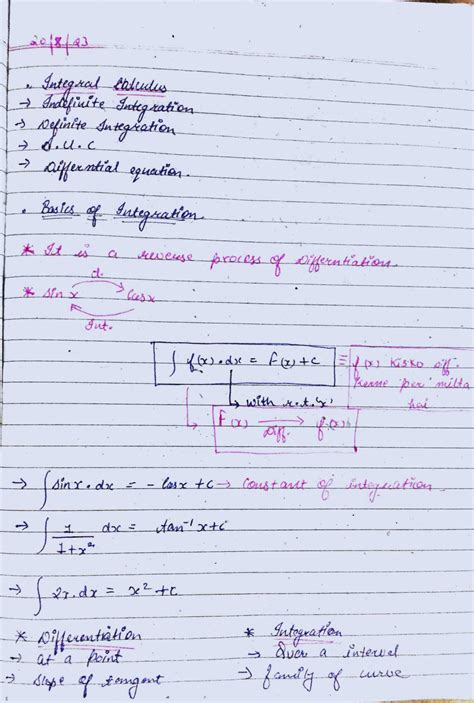 20/8/23
. Integral Calculus
→ Indefinite Integration
→ Definite Integration
→ A.U.C
→ Differntial equation.
. Basics of Integration
* It is a reverse process of Differntiation.
d.
* sin x cosx
Int.
∫ f(x).dx = F(x)+c ≡ f(x) kisko diff. karne per milta hai
↳ with r.t.'x'
F(x) → Diff. f(x)
→ ∫ sinx.dx = - cosx + c → constant of integration
→ ∫ 1/1+x² dx = tan⁻¹x+c
→ ∫ 2x.dx = x²+c
* Differentiation
→ at a point
→ slope of tangent
* Integration
→ Over a interval
→ family of curve